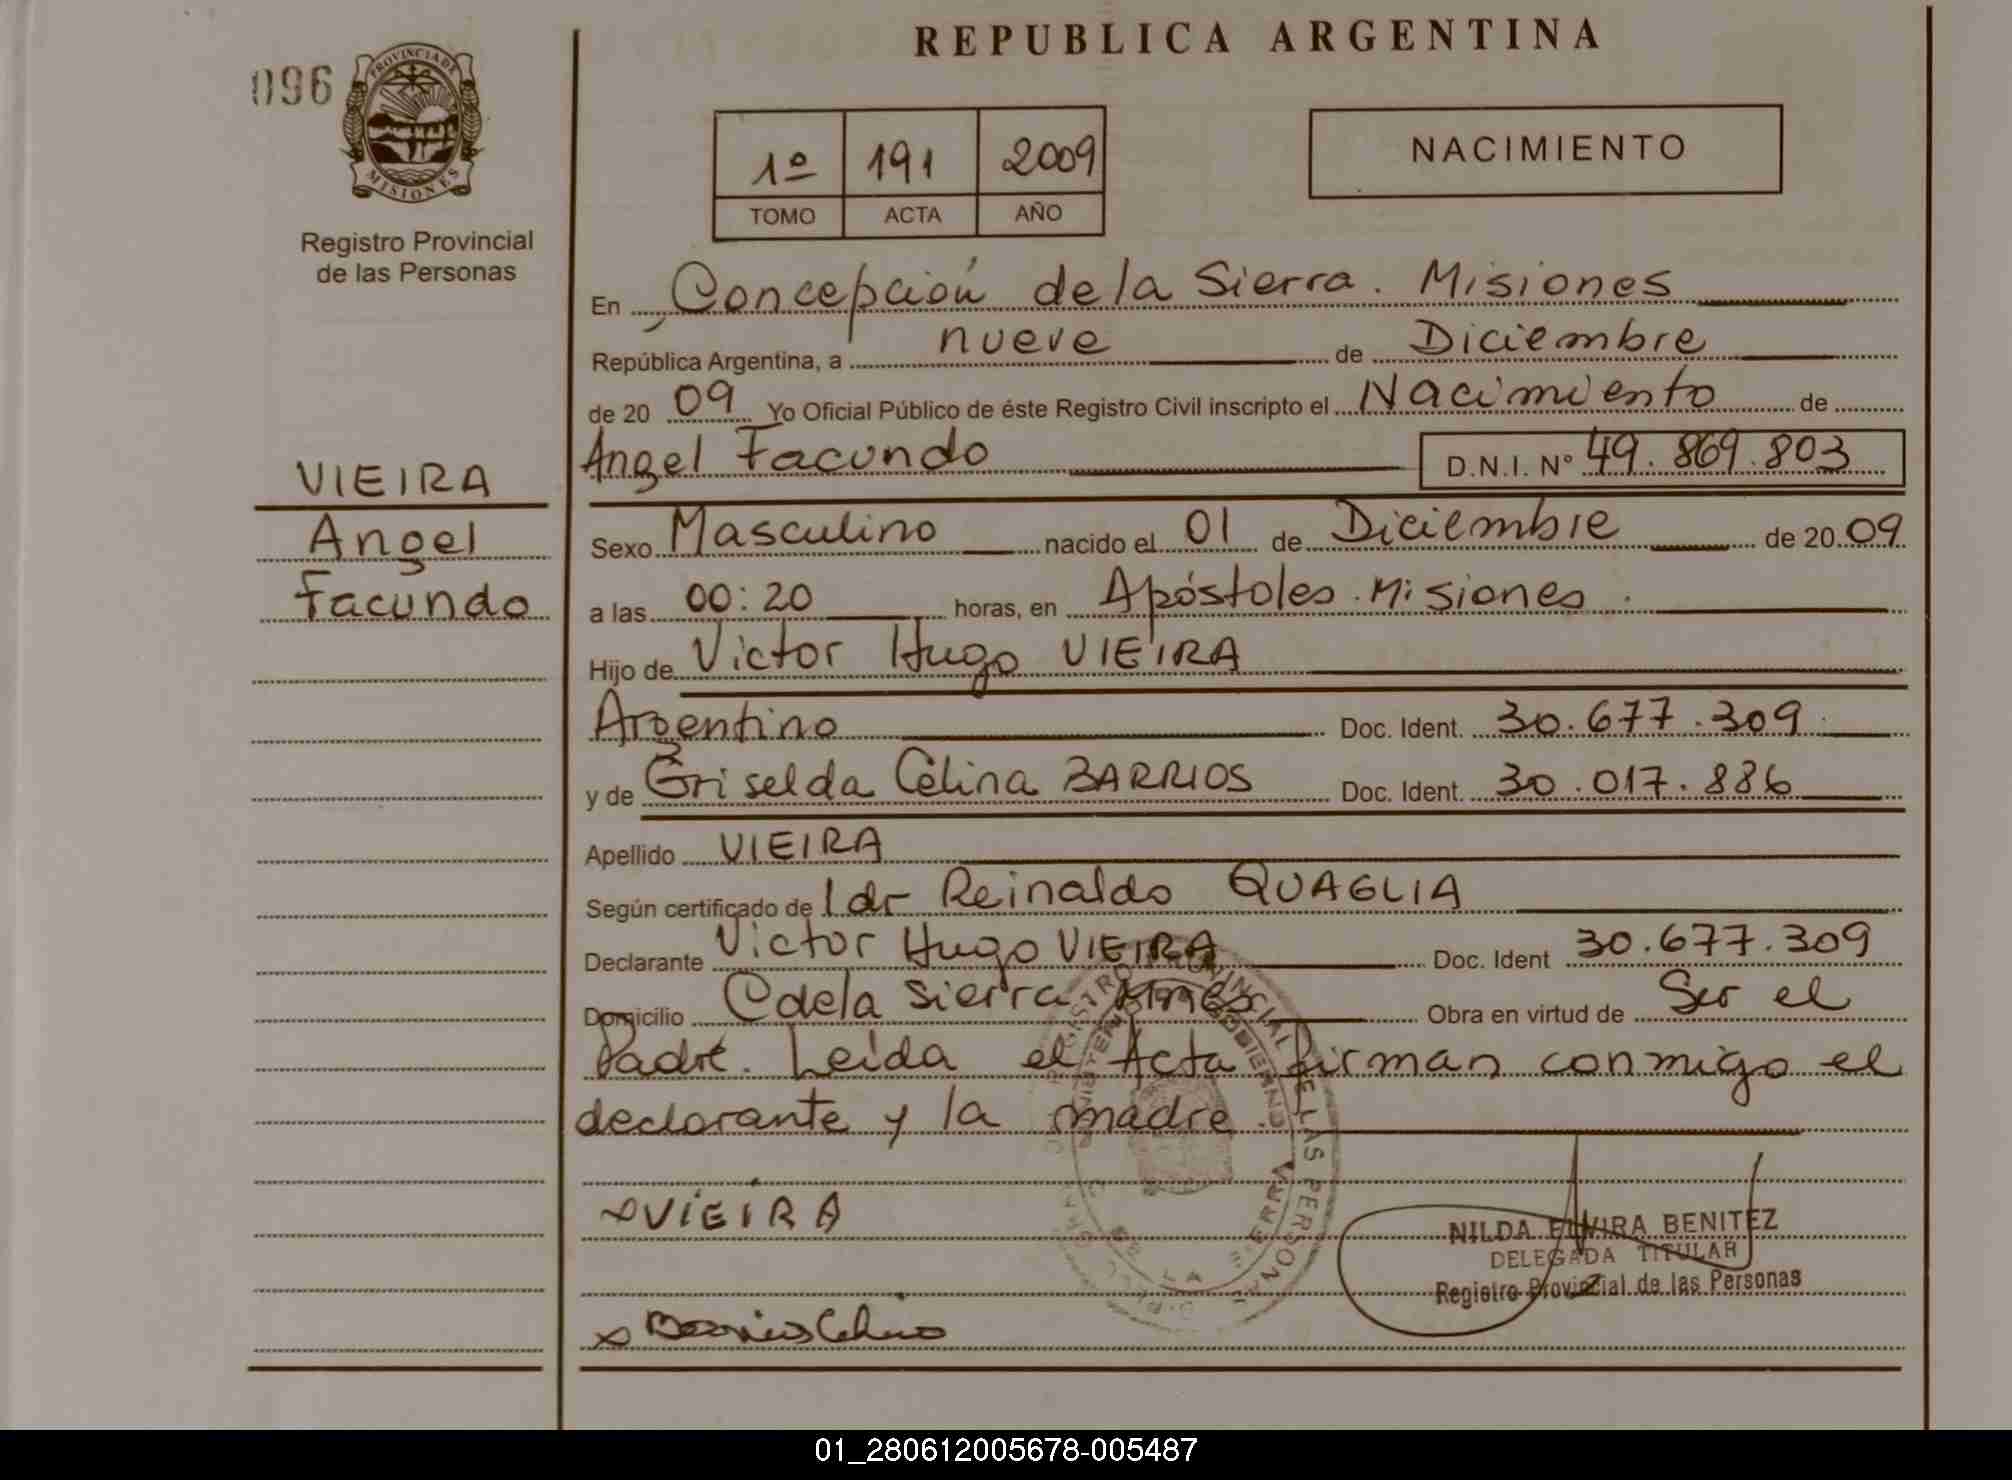 REPUBLICA ARGENTINA
096
PROVINCIA DE
MISIONES
Registro Provincial
de las Personas
1º 191 2009
TOMO ACTA AÑO
NACIMIENTO
En Concepción de la Sierra. Misiones
República Argentina, a nueve de Diciembre
de 20 09 Yo Oficial Público de éste Registro Civil inscripto el Nacimiento de
Angel Facundo D.N.I. Nº 49.869.803
VIEIRA
Angel
Facundo
Sexo Masculino nacido el 01 de Diciembre de 20 09
a las 00:20 horas, en Apóstoles. Misiones.
Hijo de Victor Hugo VIEIRA
Argentino Doc. Ident. 30.677.309
y de Griselda Celina BARRIOS Doc. Ident. 30.017.886
Apellido VIEIRA
Según certificado de l dr Reinaldo QUAGLIA
Declarante Victor Hugo VIEIRA Doc. Ident 30.677.309
Domicilio C de la Sierra Mnes Obra en virtud de Ser el
Padre. Leída el Acta firman conmigo el
declarante y la madre.
x VIEIRA
NILDA ELVIRA BENITEZ
DELEGADA TITULAR
Registro Provincial de las Personas
x Barrios Celina
01_280612005678-005487